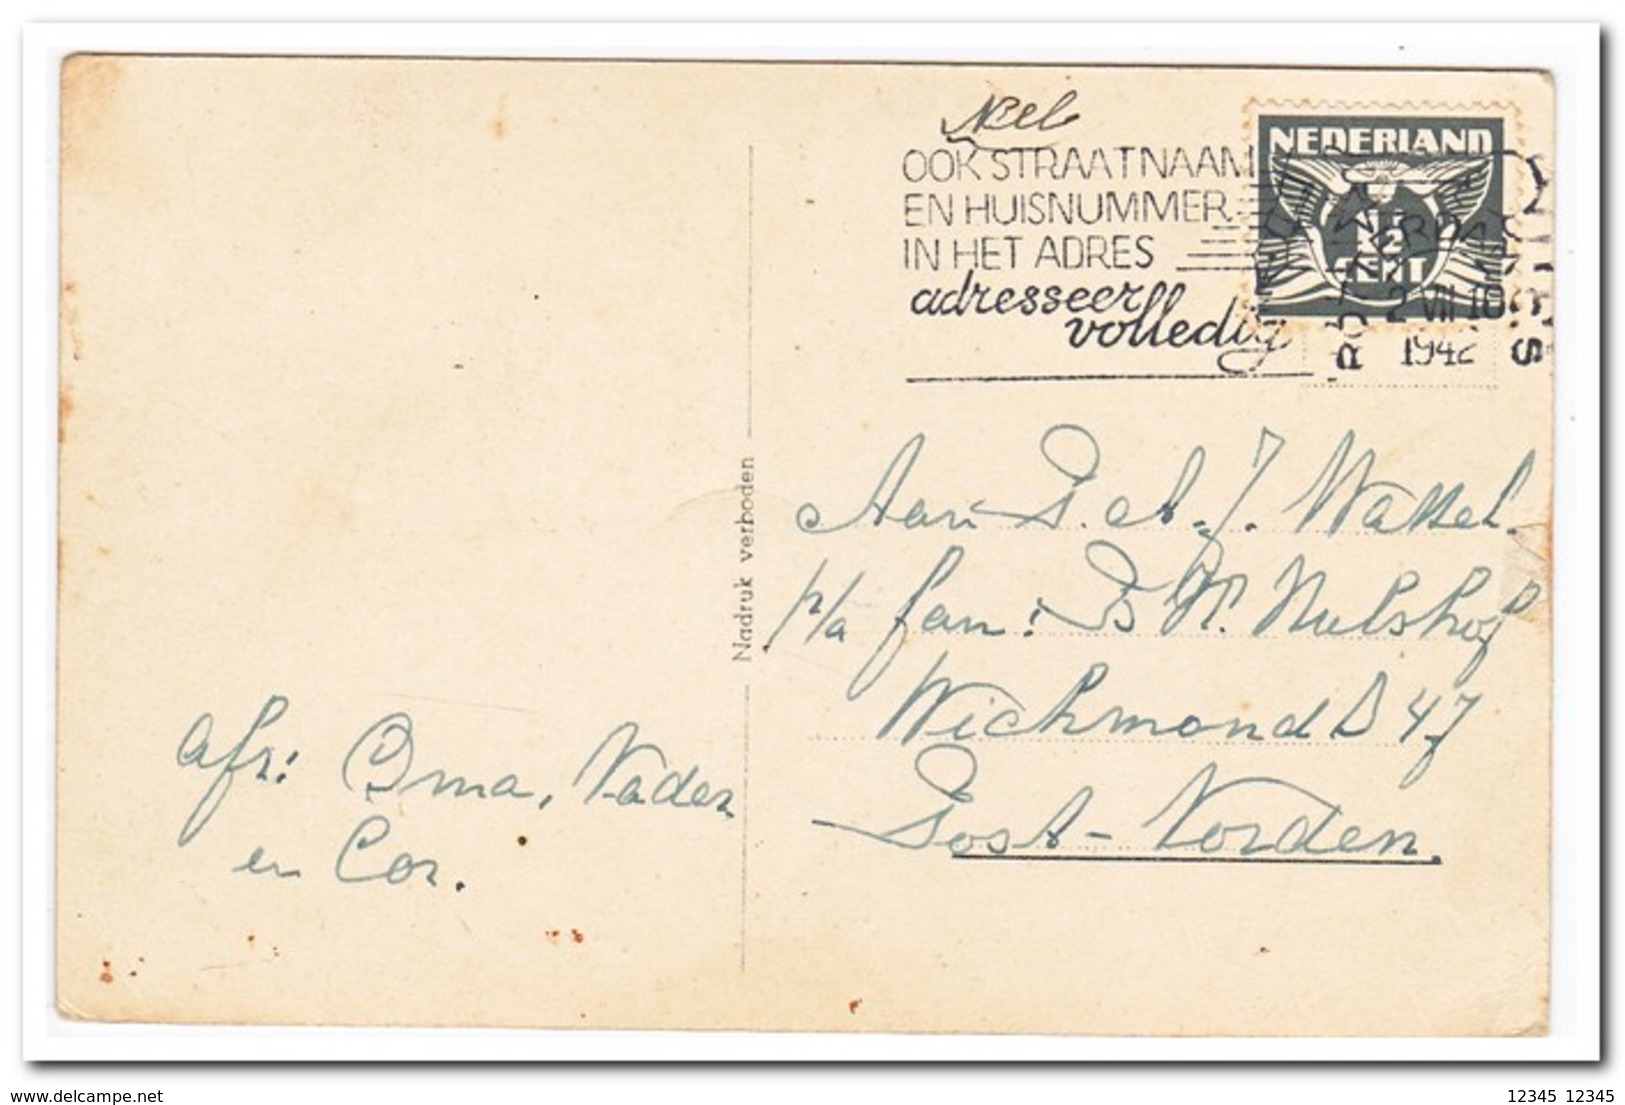 OOK STRAATNAAM
EN HUISNUMMER
IN HET ADRES
adresseer
volledig
NEDERLAND
CENT
2 VIII 18
1942
Nadruk verboden
Aan
p/a fam:
Wichmond D 47
Post-Vorden.
afz: Oma, Vader
en Cor.
delcampe.net
12345 12345